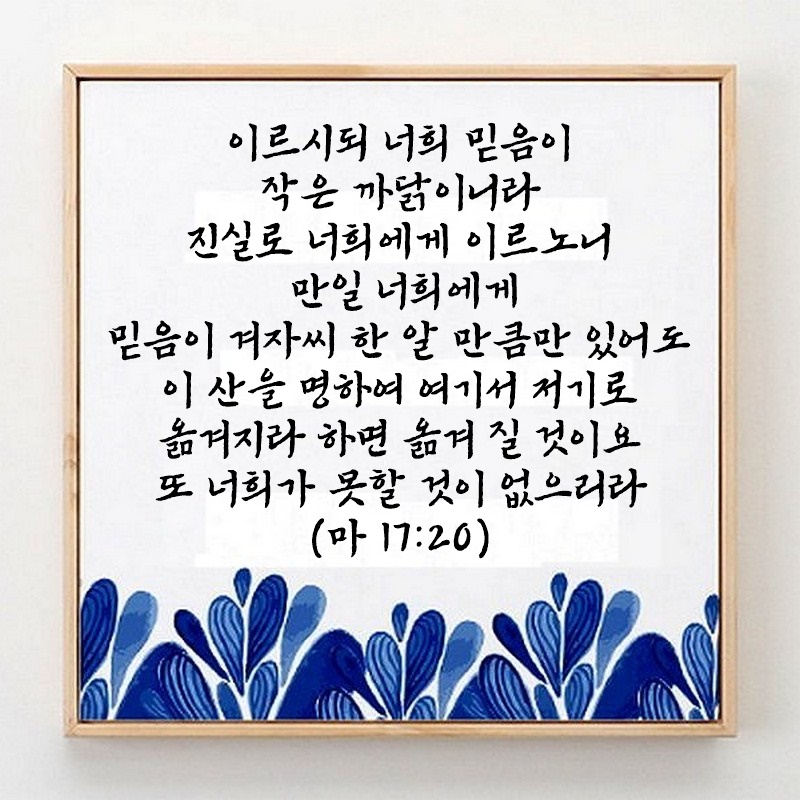 이르시되 너희 믿음이
작은 까닭이니라
진실로 너희에게 이르노니
만일 너희에게
믿음이 겨자씨 한 알 만큼만 있어도
이 산을 명하여 여기서 저기로
옮겨지라 하면 옮겨 질 것이요
또 너희가 못할 것이 없으리라
(마 17:20)